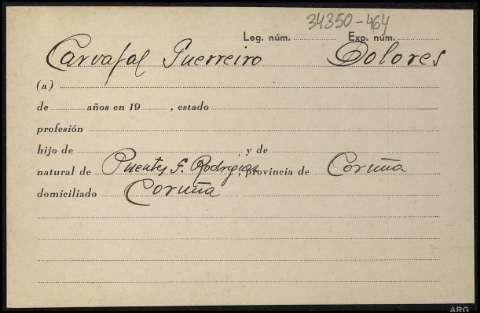 34350-464
Leg. núm. Exp. núm.
Carvajal Guerreiro Dolores
(a)
de años en 19 , estado
profesión
hijo de y de
natural de Puentes G. Rodriguez, provincia de Coruña
domiciliado Coruña
ARG